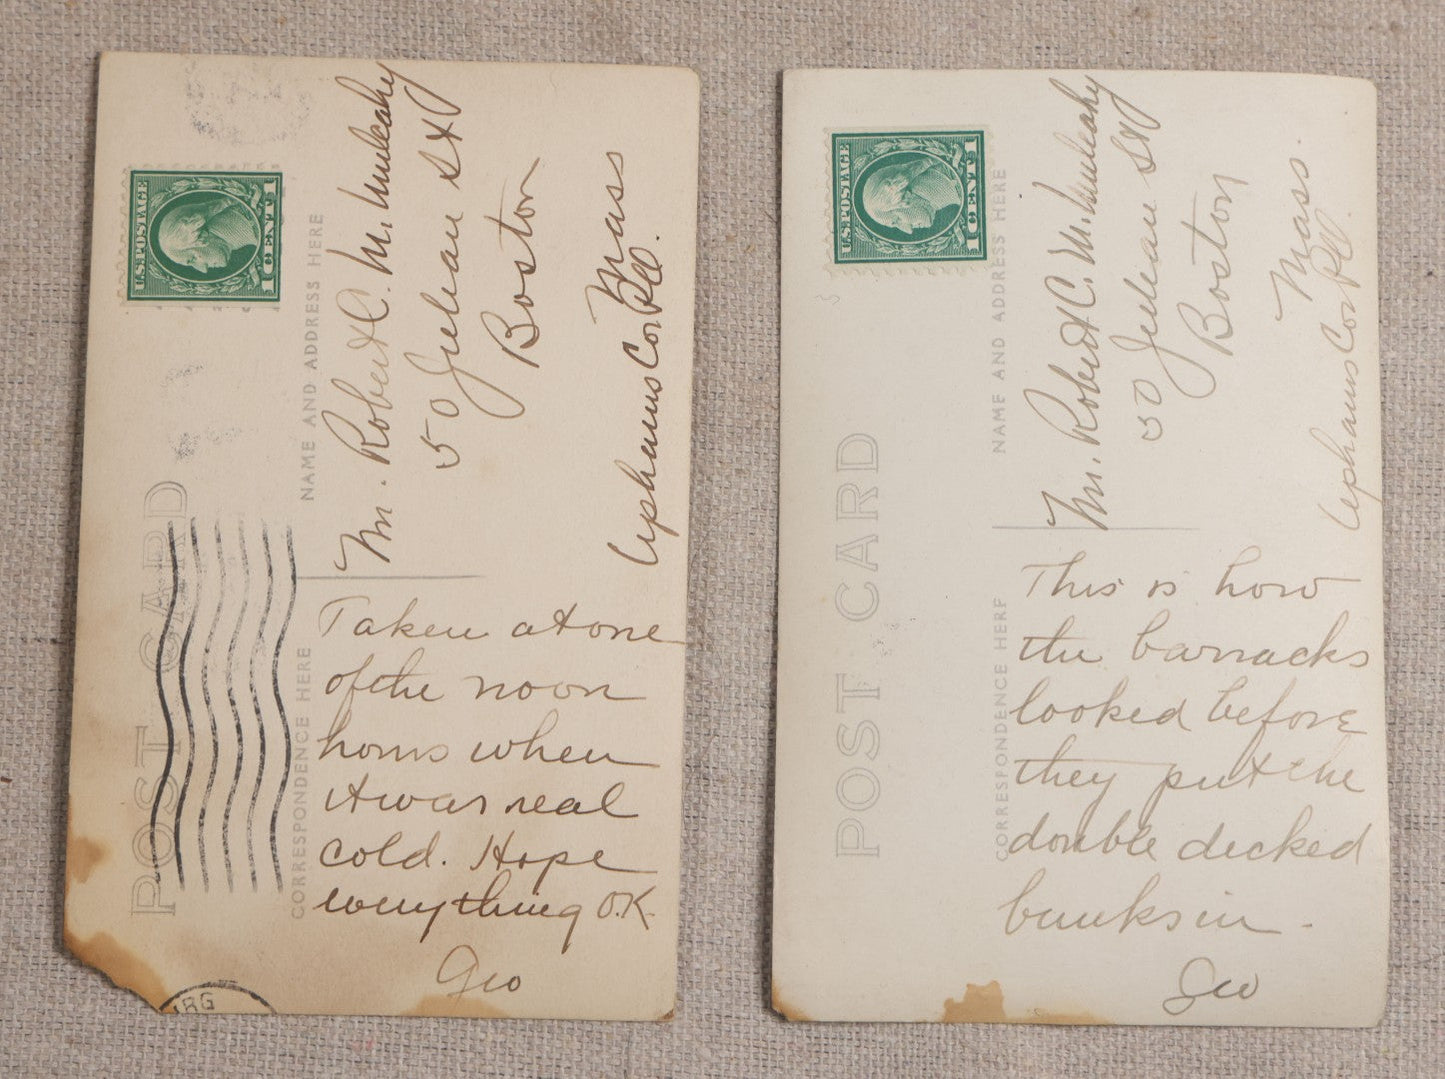 U.S.POSTAGE
1 CENT 1
POST CARD
NAME AND ADDRESS HERE
Mr. Robert C. Mulcahy
50 Julian St
Boston
Mass
Uphams Cor
CORRESPONDENCE HERE
Taken at one
of the noon
hours when
it was real
cold. Hope
everything O.K.
Geo
U.S.POSTAGE
1 CENT 1
POST CARD
NAME AND ADDRESS HERE
Mr. Robert C. Mulcahy
50 Julian St
Boston
Mass.
Uphams Cor
CORRESPONDENCE HERE
This is how
the barracks
looked before
they put the
double decked
bunks in.
Geo